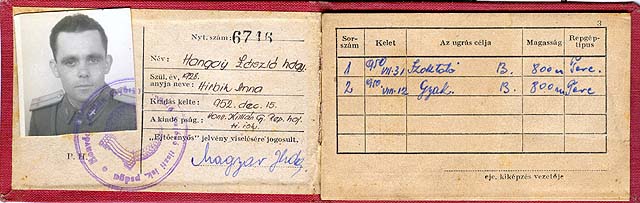 Nyt. szám: 6716
Név: Hangay László hdgy.
Szül. év, 1928.
anyja neve: Hirbik Anna
Kiadás kelte: 952. dec. 15.
A kiadó pság.:
"Ejtőernyős" jelvény viselésére jogosult,
P. H.
Magyar
3
Sorszám Kelet Az ugrás célja Magasság Repgép-típus
1 950 VII.31 Szoktató B. 800 m
2 950 VIII.12 Gyak. B. 800 m
eje. kiképzés vezetője